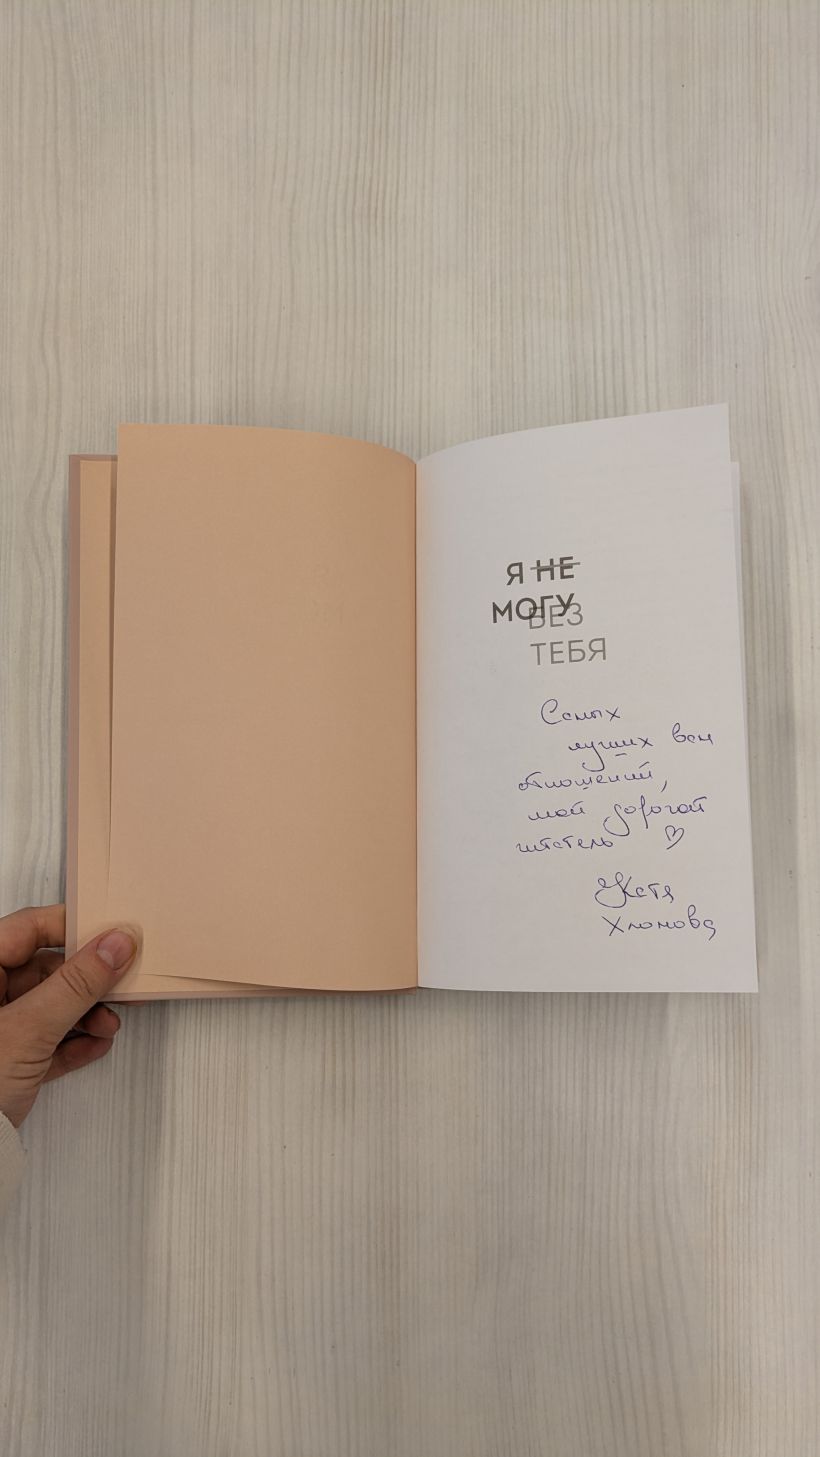 Я НЕ
МОГУ
БЕЗ
ТЕБЯ
Самых
лучших вам
отношений,
мой дорогой
читатель ♡
Катя
Хломова